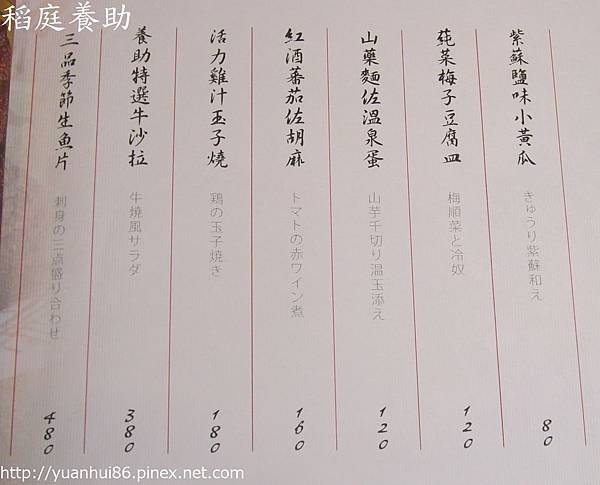 稻庭養助
紫蘇鹽味小黃瓜
きゅうり紫蘇和え
80
蓴菜梅子豆腐皿
梅順菜と冷奴
120
山藥麵佐溫泉蛋
山芋千切り温玉添え
120
紅酒蕃茄佐胡麻
トマトの赤ワイン煮
160
活力雞汁玉子燒
鶏の玉子焼き
180
養助特選牛沙拉
牛焼風サラダ
380
三品季節生魚片
刺身の三点盛り合わせ
480
http://yuanhui86.pixnet.com